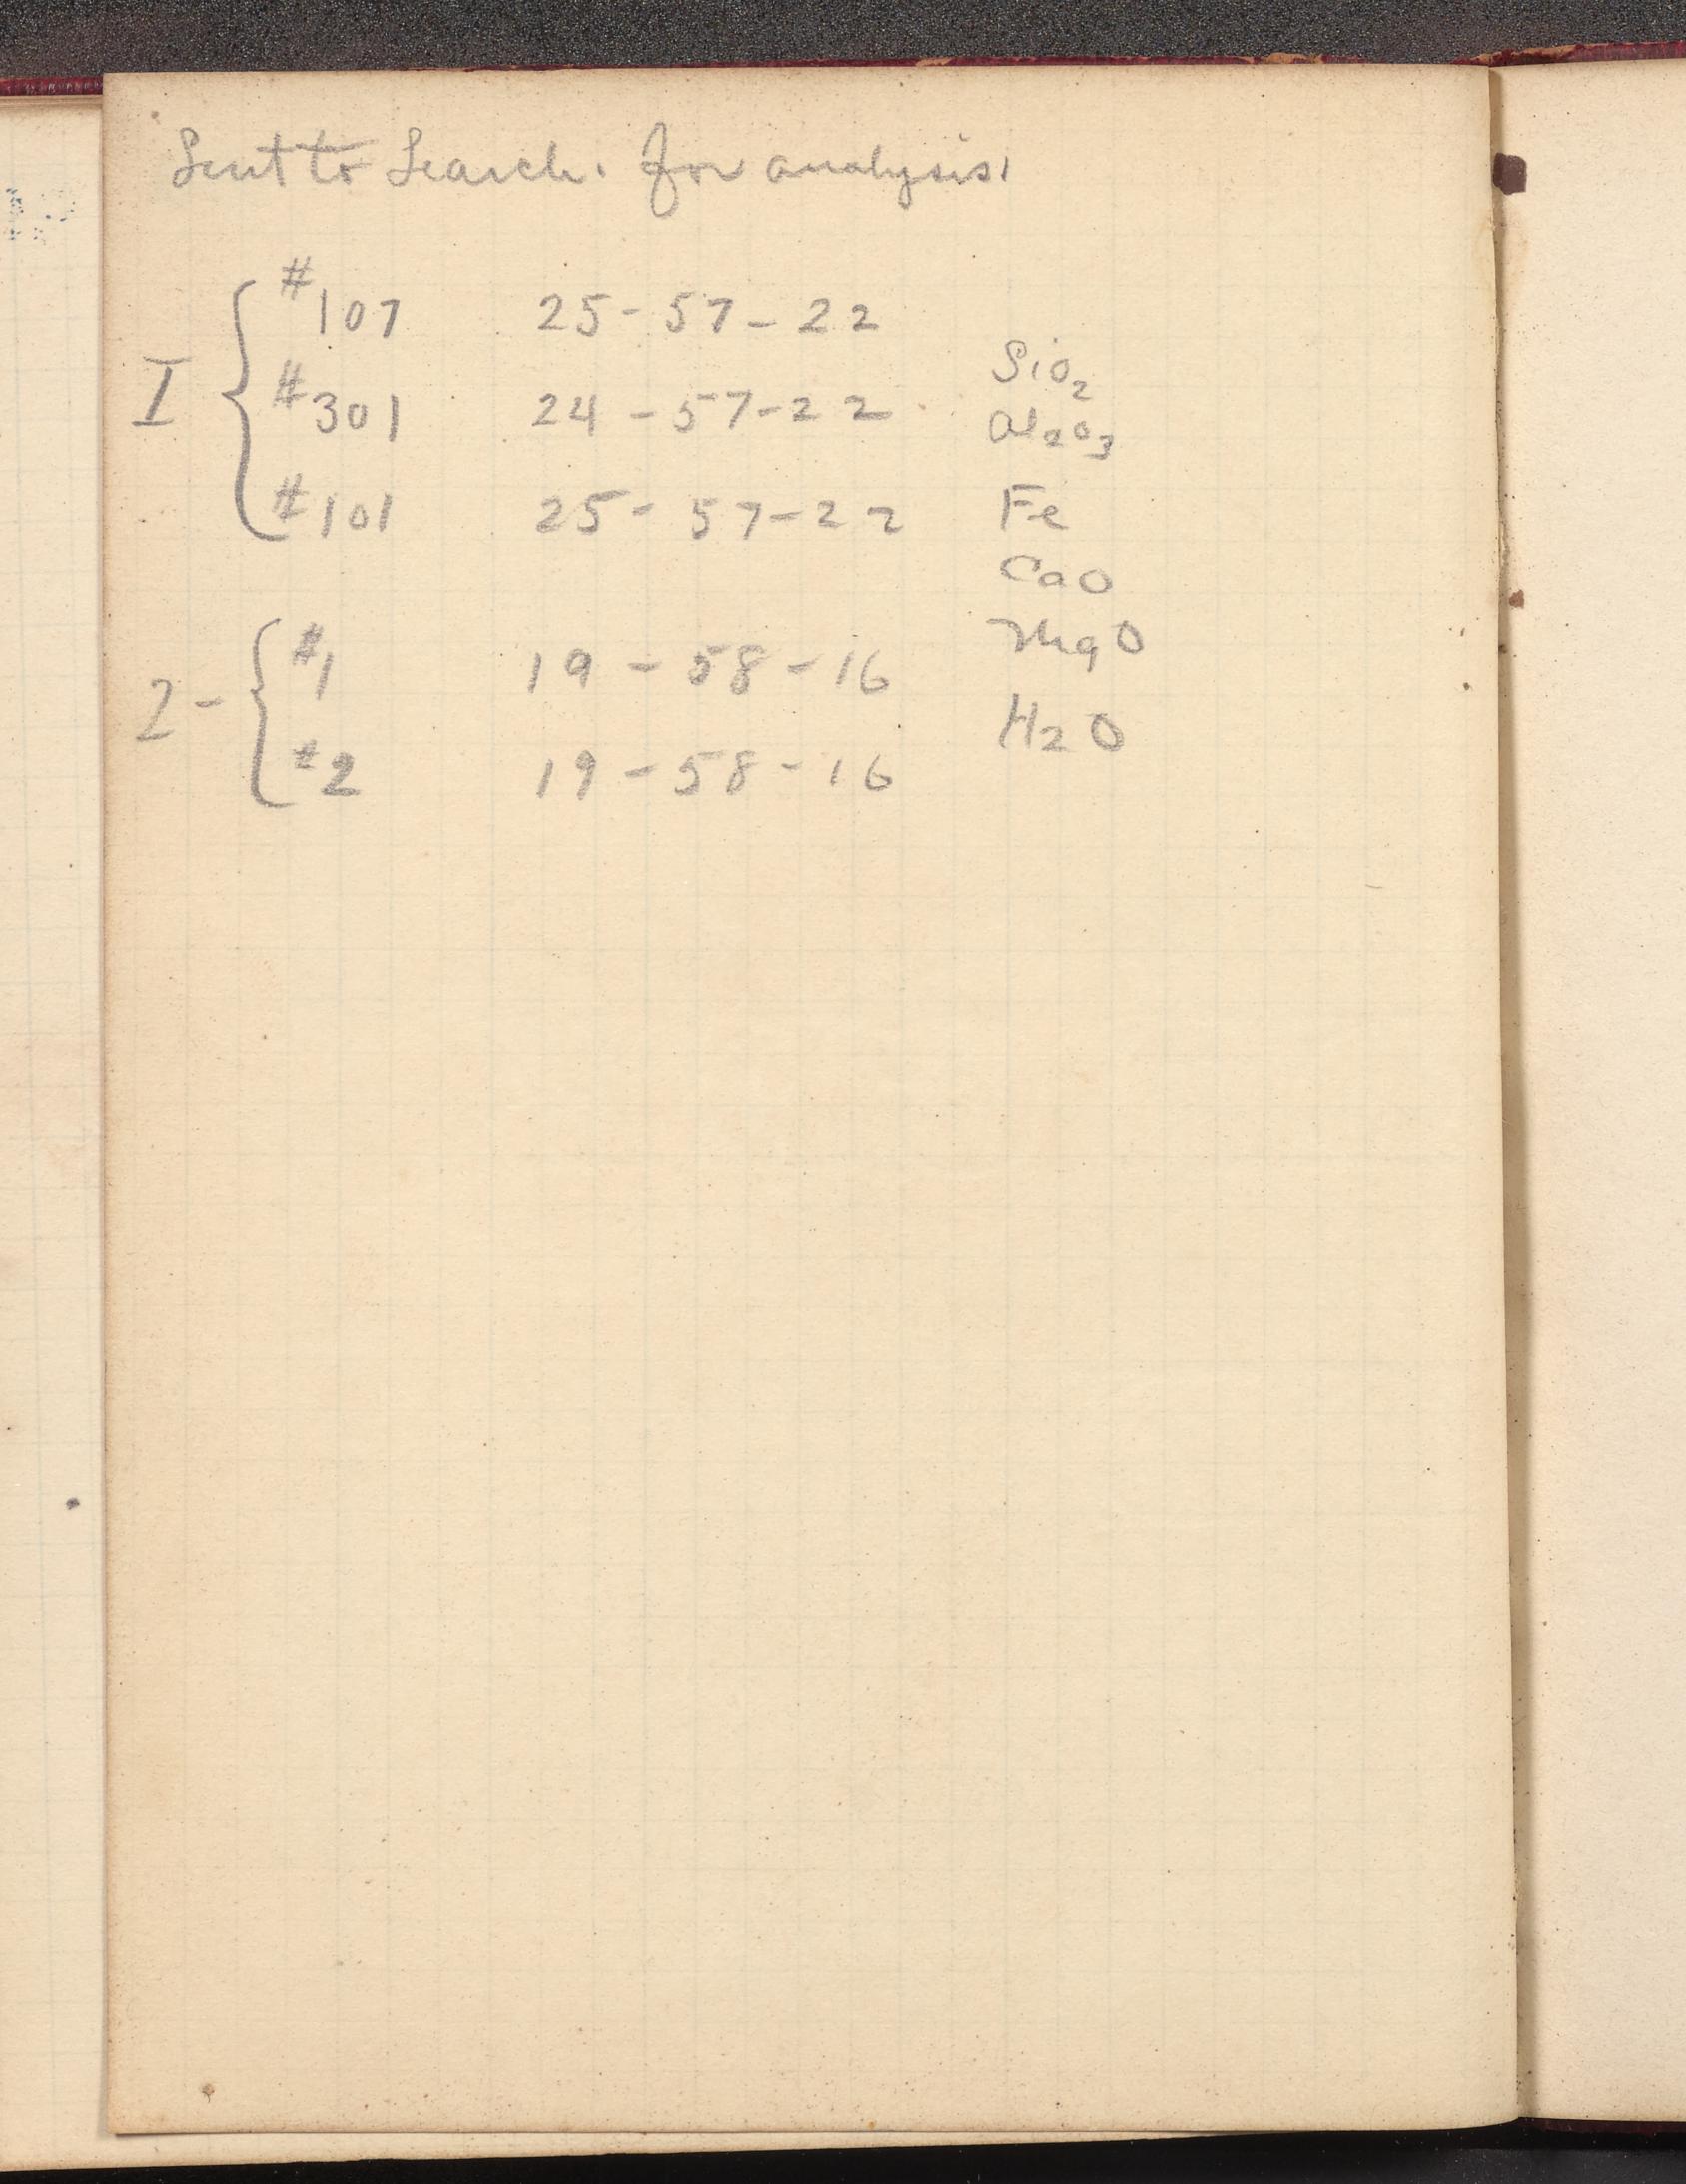 Sent to Search. for analysis.
#107 25-57-22
I #301 24-57-22
#101 25-57-22
SiO2
Al2O3
Fe
CaO
MgO
H2O
#1 19-58-16
2- #2 19-58-16